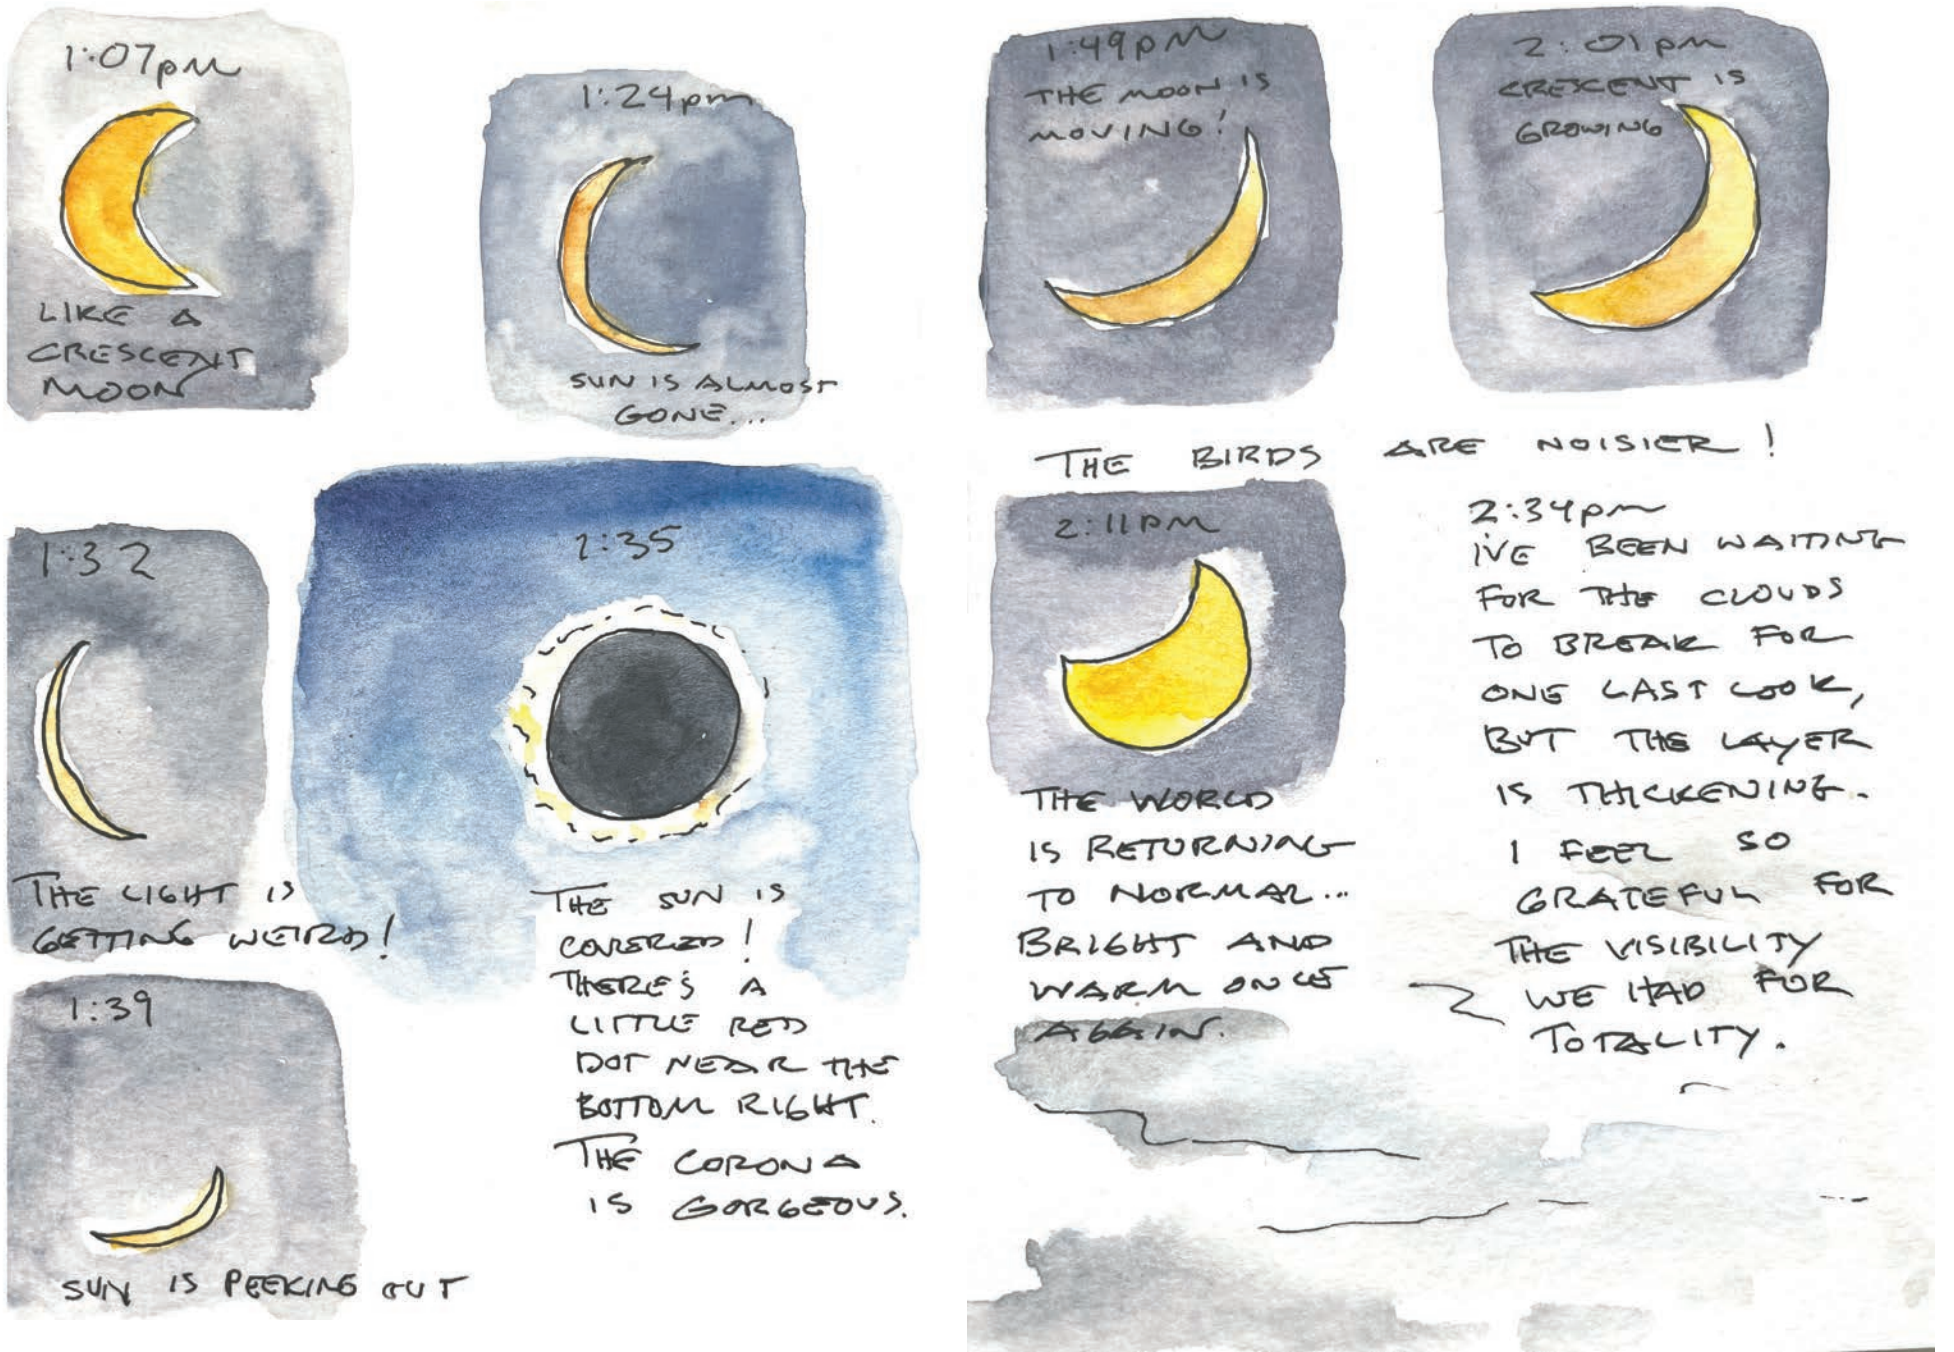 1:07pm
LIKE A
CRESCENT
MOON
1:24pm
SUN IS ALMOST
GONE...
1:32
THE LIGHT IS
GETTING WEIRD!
1:35
THE SUN IS
COVERED!
THERE'S A
LITTLE RED
DOT NEAR THE
BOTTOM RIGHT.
THE CORONA
IS GORGEOUS.
1:39
SUN IS PEEKING OUT
1:49pm
THE MOON IS
MOVING!
2:01pm
CRESCENT IS
GROWING
THE BIRDS ARE NOISIER!
2:11pm
THE WORLD
IS RETURNING
TO NORMAL...
BRIGHT AND
WARM ONCE
AGAIN.
2:34pm
I'VE BEEN WAITING
FOR THE CLOUDS
TO BREAK FOR
ONE LAST LOOK,
BUT THE LAYER
IS THICKENING.
I FEEL SO
GRATEFUL FOR
THE VISIBILITY
WE HAD FOR
TOTALITY.